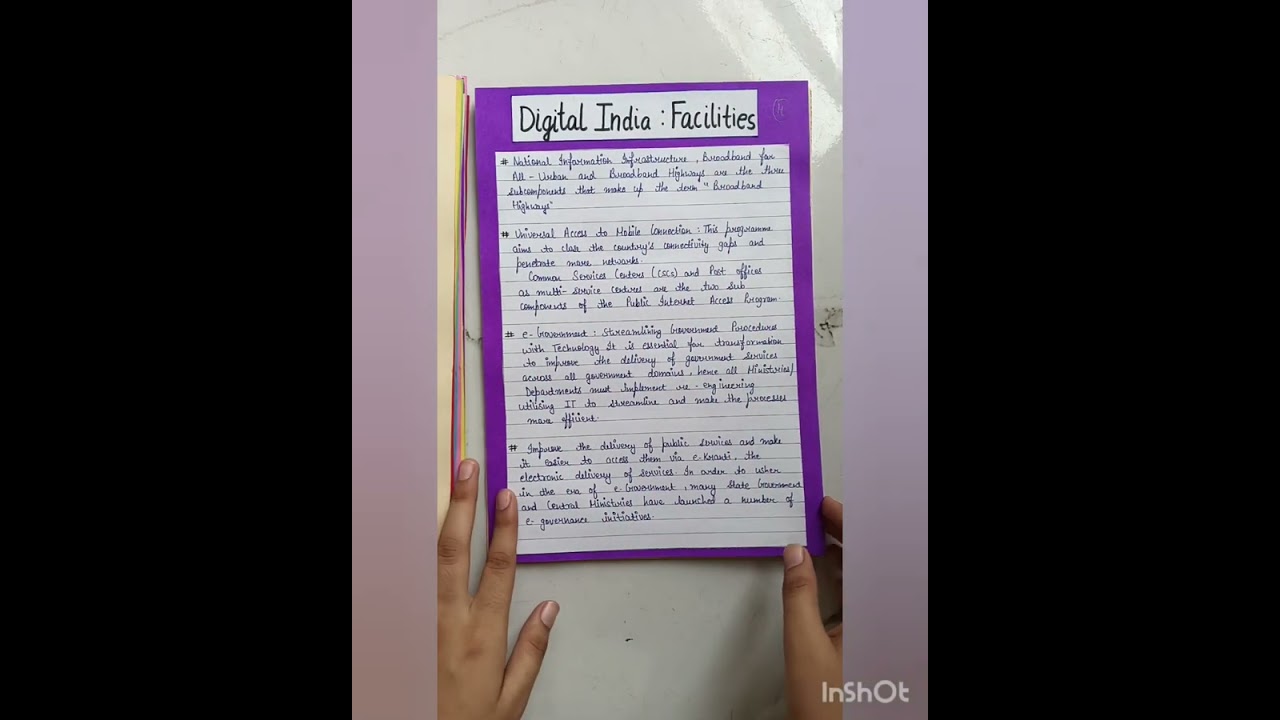 Digital India : Facilities
# National Information Infrastructure, Broadband for
All - Urban and Broadband Highways are the three
subcomponents that make up the term "Broadband
Highways"
# Universal Access to Mobile Connection : This programme
aims to close the country's connectivity gaps and
penetrate more networks.
Common Services Centers (CSCs) and Post offices
as multi-service centres are the two sub
components of the Public Internet Access Program.
# e-Government : Streamlining Government Procedures
with Technology It is essential for transformation
to improve the delivery of government services
across all government domains, hence all Ministries/
Departments must implement re-engineering
utilising IT to streamline and make the processes
more efficient.
# Improve the delivery of public services and make
it easier to access them via e-Kranti, the
electronic delivery of services. In order to usher
in the era of e-Government, many State Government
and Central Ministries have launched a number of
e-governance initiatives.
InShOt